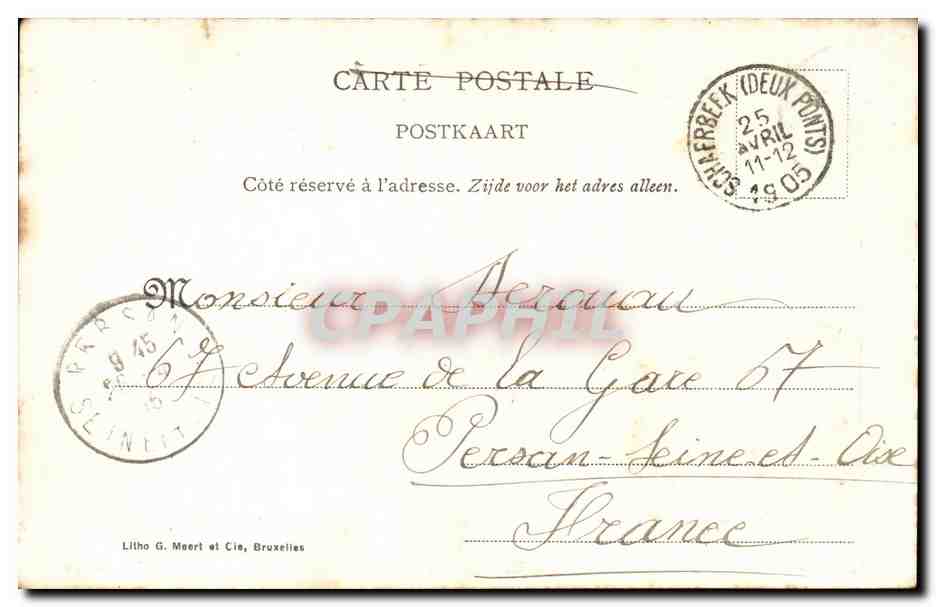 CARTE POSTALE
POSTKAART
Côté réservé à l'adresse. Zijde voor het adres alleen.
SCHAERBEEK (DEUX PONTS)
25
AVRIL
11-12
1905
Monsieur
CPAPHIL
PERSAN
9 45
SEINE ET
67 Avenue de la Gare 67
Persan-Seine-et-Oise
France
Litho G. Meert et Cie, Bruxelles